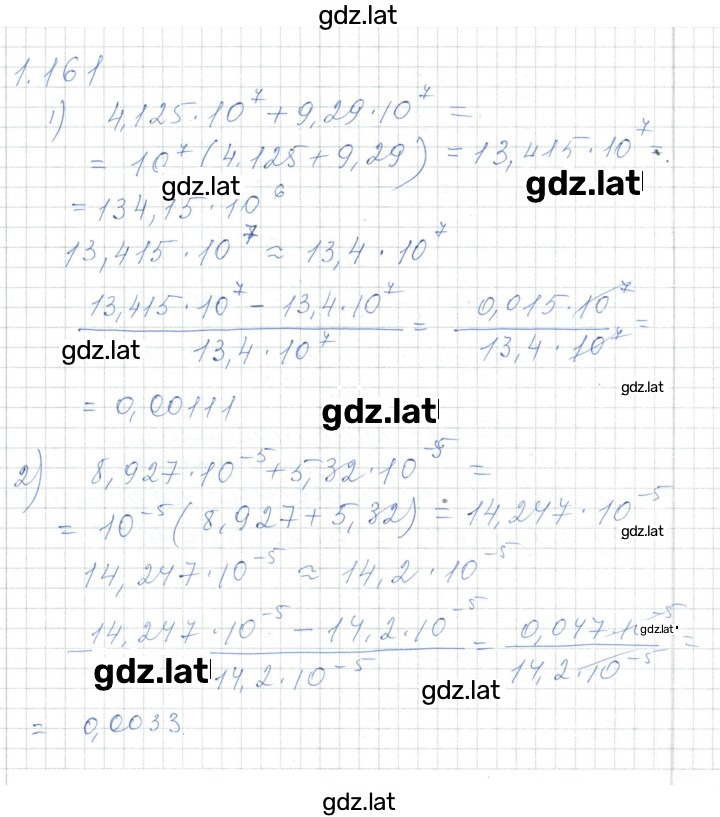 gdz.lat
1.161
1) 4,125·10⁷ + 9,29·10⁷ =
= 10⁷ (4.125 + 9,29) = 13,415·10⁷ =
gdz.lat gdz.lat
= 134,15·10⁶
13,415·10⁷ ≈ 13,4·10⁷
13,415·10⁷ − 13,4·10⁷ / 13,4·10⁷ = 0,015·10⁷ / 13,4·10⁷ =
gdz.lat
gdz.lat
= 0,00111
gdz.lat
2) 8,927·10⁻⁵ + 5,32·10⁻⁵ =
= 10⁻⁵ (8,927 + 5,32) = 14,247·10⁻⁵
gdz.lat
14,247·10⁻⁵ ≈ 14,2·10⁻⁵
14,247·10⁻⁵ − 14,2·10⁻⁵ / 14,2·10⁻⁵ = 0,047·10⁻⁵ / 14,2·10⁻⁵ =
gdz.lat
gdz.lat
gdz.lat
= 0,0033.
gdz.lat